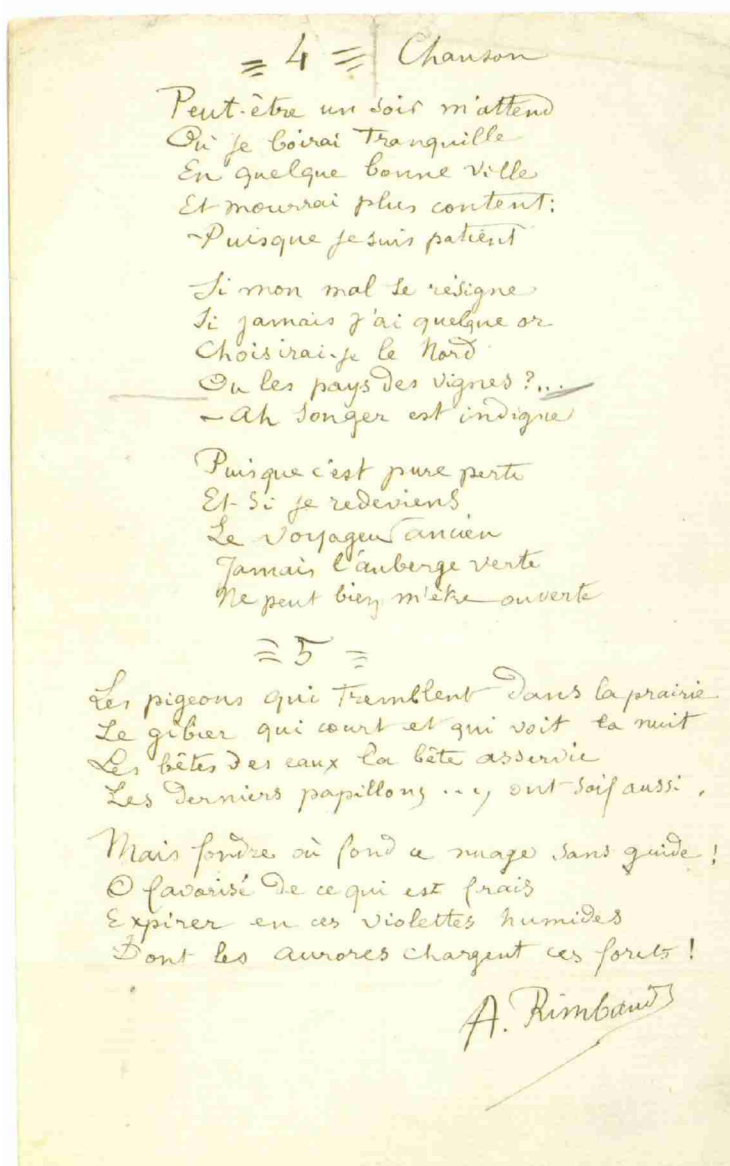 = 4 = Chanson
Peut-être un soir m'attend
Où je boirai Tranquille
En quelque bonne Ville
Et mourrai plus content:
- Puisque je suis patient
Si mon mal se résigne
Si jamais j'ai quelque or
Choisirai-je le Nord
Ou les pays des vignes ?...
- Ah Songer est indigne
Puisque c'est pure perte
Et si je redeviens
Le Voyageur ancien
Jamais l'auberge verte
Ne peut bien m'être ouverte
= 5 =
Les pigeons qui Tremblent Dans la prairie
Le gibier qui court et qui voit la nuit
Les bêtes des eaux la bête asservie
Les Derniers papillons ... y ont soif aussi.
Mais fondre où fond ce nuage sans guide !
O favorisé De ce qui est frais
Expirer en ces violettes humides
Dont les aurores chargent ces forets !
A. Rimbaud